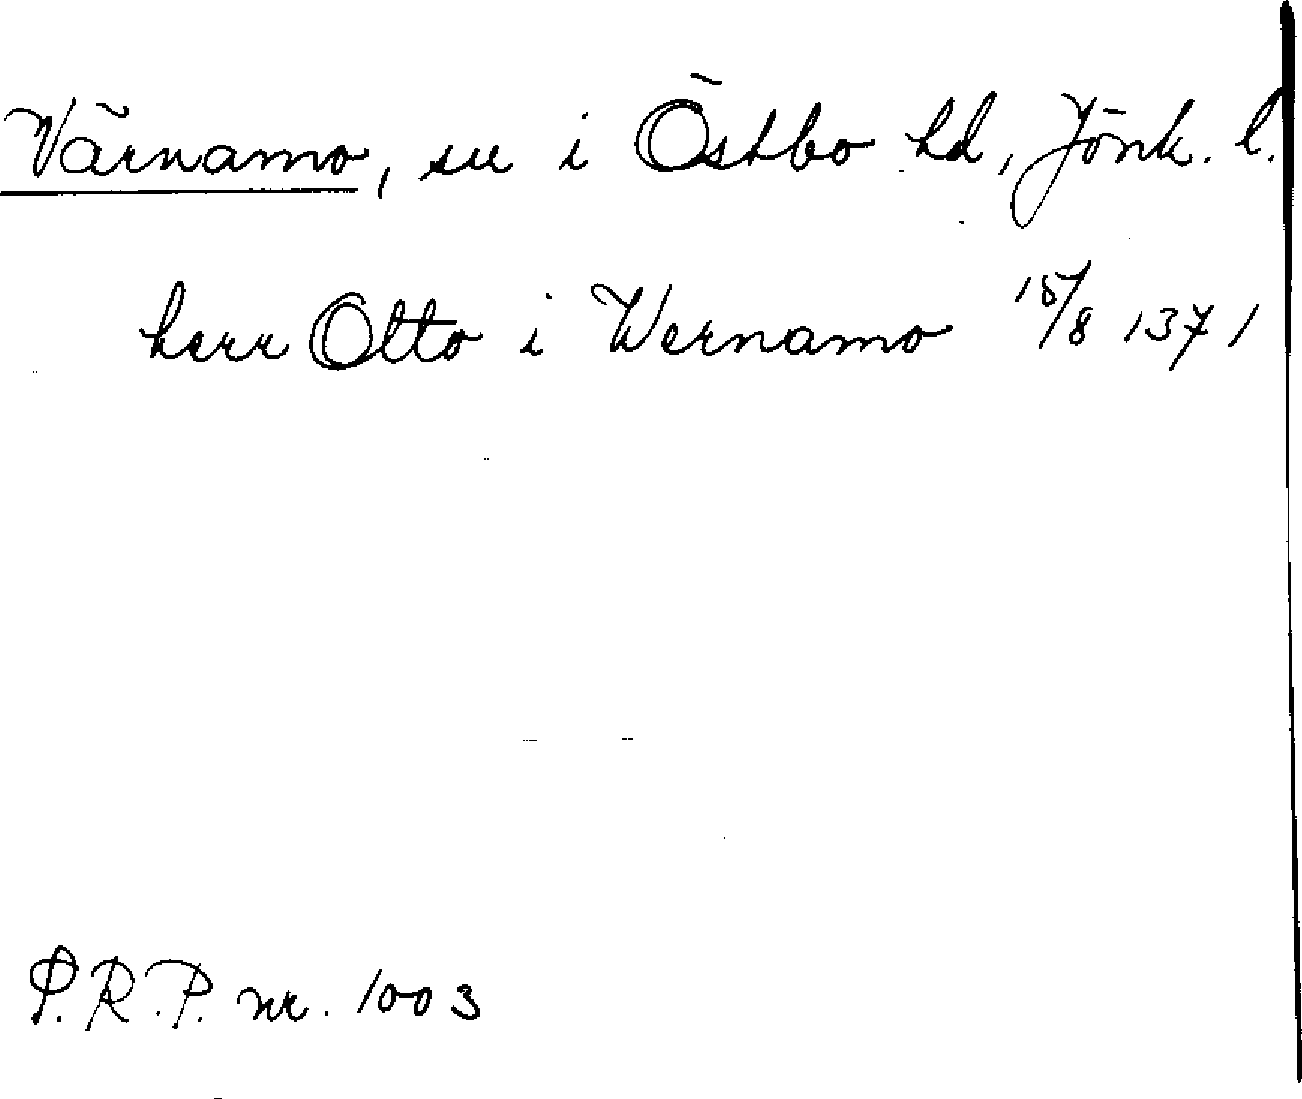 Värnamo, sn i Östbo hd, Jönk. l.
herr Otto i Wernamo 15/8 1371
P.R.P. nr. 1003